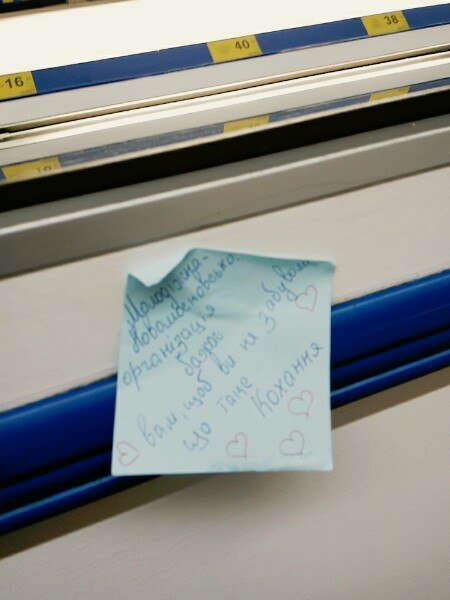 16
40
38
організація
бажає
вам, щоб ви не забували
що таке Кохання